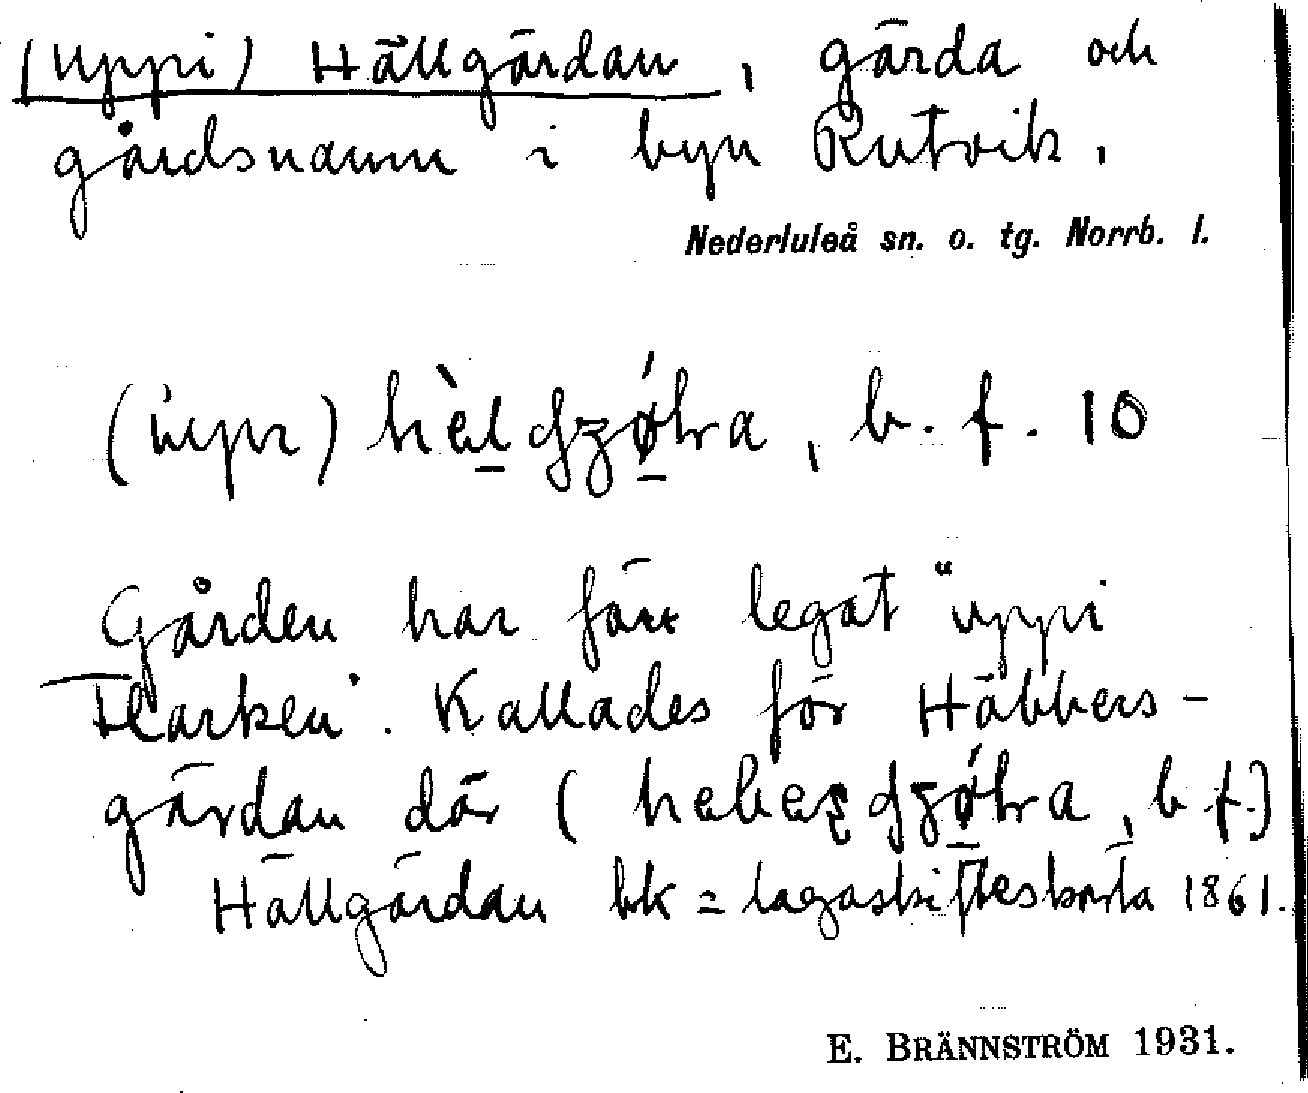 (uppi) Hällgärdan, gärda och
gårdsnamn i byn Rutvik.
Nederluleå sn. o. tg. Norrb. l.
b. f. 10
Gården har förr legat "uppi
Flarken". Kallades för Häbbers-
gärdan där ( , b. f.)
Hällgärdan lsk = lagaskifteskarta 1861.
E. BRÄNNSTRÖM 1931.